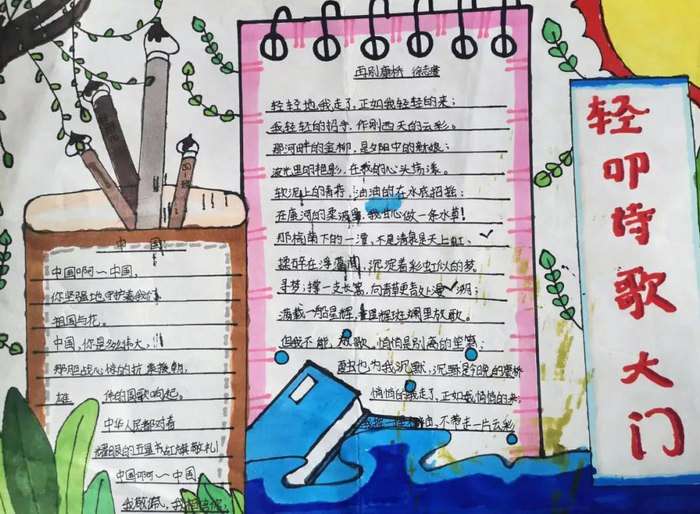 轻叩诗歌大门
再别康桥 徐志摩
轻轻地我走了,正如我轻轻的来;
我轻轻的招手,作别西天的云彩。
那河畔的金柳,是夕阳中的新娘;
波光里的艳影,在我的心头荡漾。
软泥上的青荇,油油的在水底招摇;
在康河的柔波里,我甘心做一条水草!
那榆荫下的一潭,不是清泉是天上虹;
揉碎在浮藻间,沉淀着彩虹似的梦。
寻梦?撑一支长篙,向青草更青处漫溯;
满载一船星辉,在星辉斑斓里放歌。
但我不能放歌,悄悄是别离的笙箫;
夏虫也为我沉默,沉默是今晚的康桥
悄悄的我走了,正如我悄悄的来;
不带走一片云彩
中国
中国啊~中国,
你坚强地守护着我们
祖国与花。
中国,你是多么伟大,
雄
的国歌响起。
中华人民都对着
五星红旗敬礼!
中国啊~中国